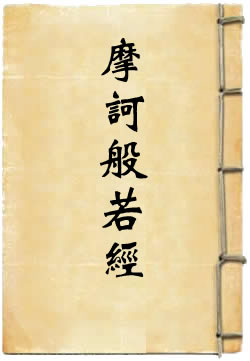 摩訶般若經